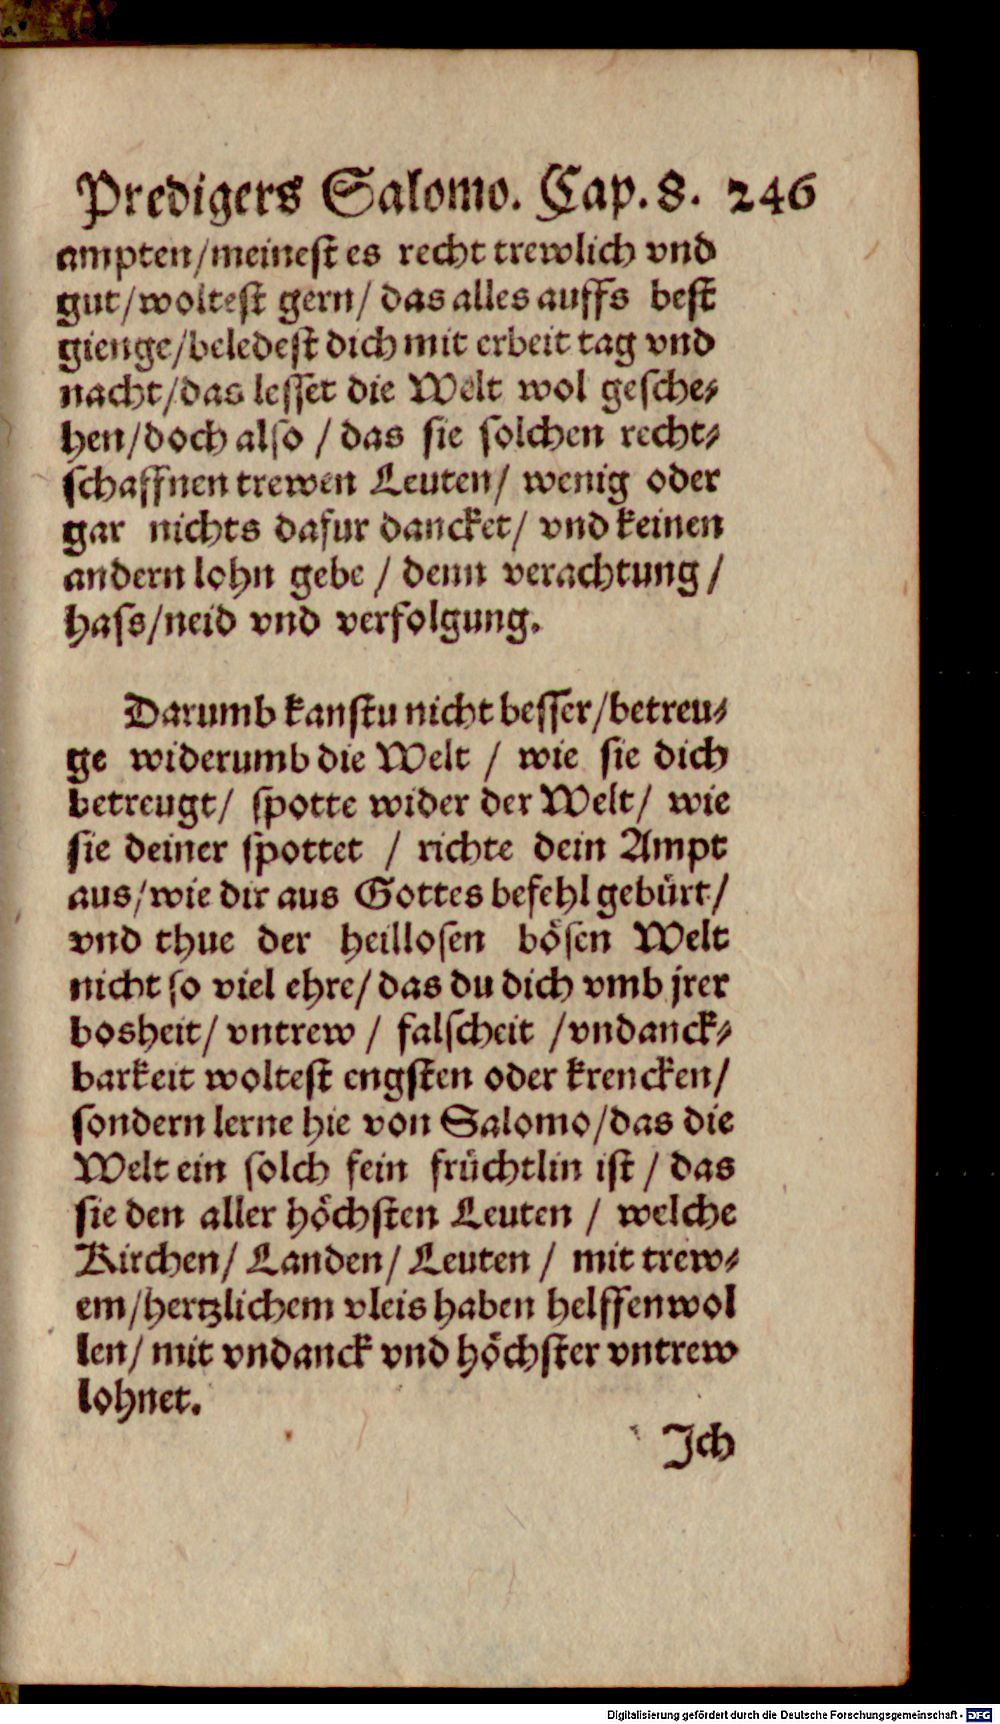 Predigers Salomo. Cap. 8. 246
ampten/meinest es recht trewlich vnd
gut/woltest gern/ das alles auffs best
gienge/beledest dich mit erbeit tag vnd
nacht/das lesset die Welt wol gesche⸗
hen/doch also / das sie solchen recht⸗
schaffnen trewen Leuten/ wenig oder
gar nichts dafur dancket/ vnd keinen
andern lohn gebe / denn verachtung/
hass/neid vnd verfolgung.
Darumb kanstu nicht besser/betreu⸗
ge widerumb die Welt / wie sie dich
betreugt/ spotte wider der Welt/ wie
sie deiner spottet / richte dein Ampt
aus/wie dir aus Gottes befehl gebürt/
vnd thue der heillosen bösen Welt
nicht so viel ehre/ das du dich vmb jrer
bosheit/ vntrew / falscheit /vndanck⸗
barkeit woltest engsten oder krencken/
sondern lerne hie von Salomo/das die
Welt ein solch fein früchtlin ist / das
sie den aller höchsten Leuten / welche
Kirchen/ Landen/ Leuten / mit trew⸗
em/hertzlichem vleis haben helffen wol
len/ mit vndanck vnd höchster vntrew
lohnet.
Jch
Digitalisierung gefördert durch die Deutsche Forschungsgemeinschaft - DFG